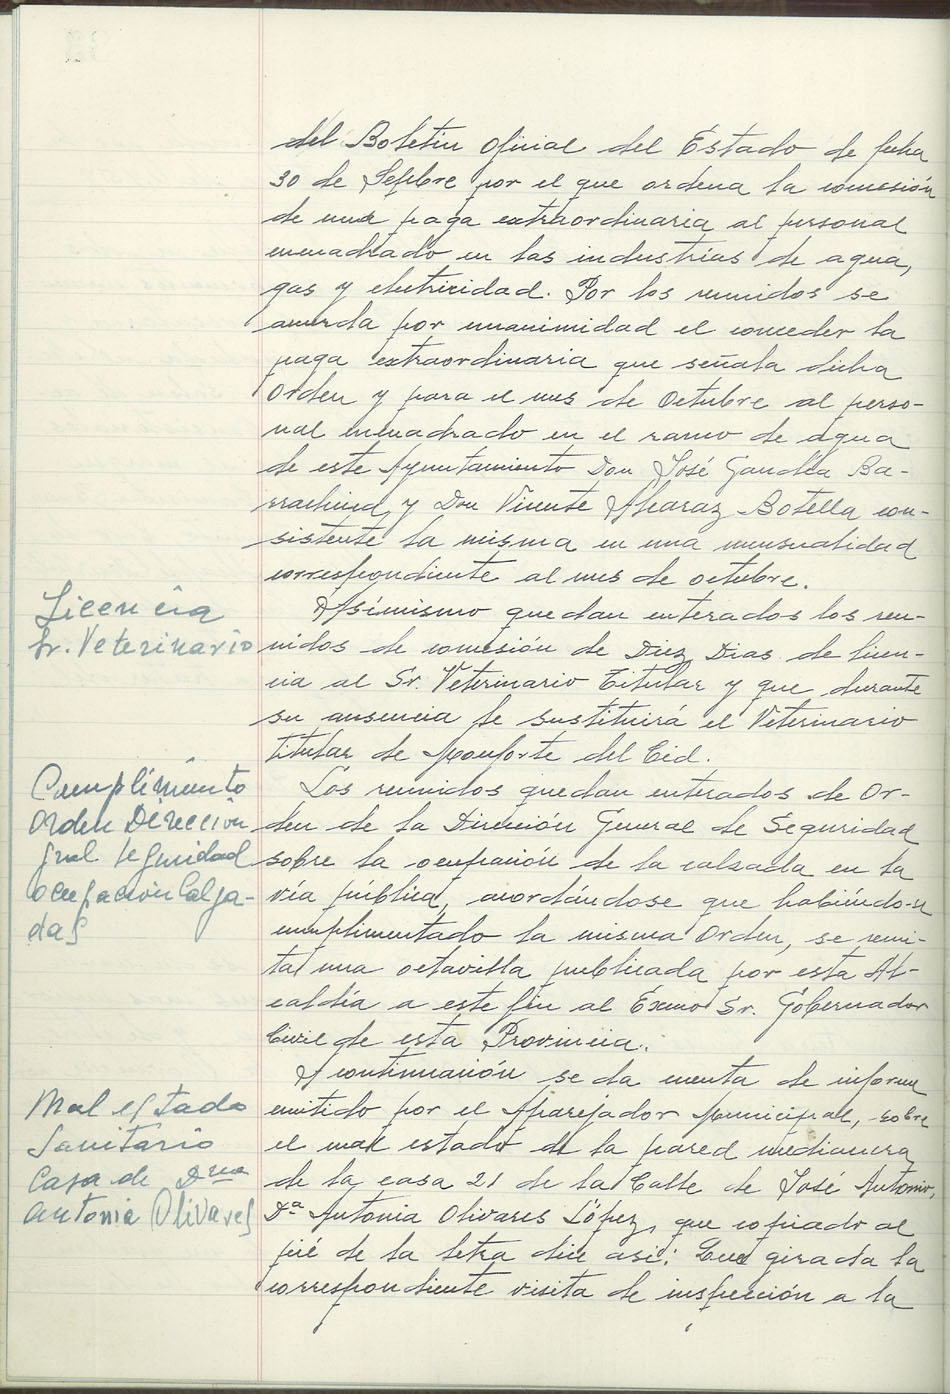 del Boletin Oficial del Estado de fecha
30 de Sepbre por el que ordena la concesión
de una paga extraordinaria al personal
encuadrado en las industrias de agua,
gas y electricidad. Por los reunidos se
acuerda por unanimidad el conceder la
paga extraordinaria que señala dicha
Orden y para el mes de Octubre al perso-
nal encuadrado en el ramo de agua
de este Ayuntamiento Don José Gandía Ba-
rrachina y Don Vicente Alcaraz Botella con-
sistente la misma en una mensualidad
correspondiente al mes de octubre.
Licencia
Sr. Veterinario
Asímismo quedan enterados los reu-
nidos de concesión de Diez Dias de licen-
cia al Sr. Veterinario Titular y que durante
su ausencia le sustituirá el Veterinario
titular de Monforte del Cid.
Cumplimiento
Orden Dirección
Gral. Seguridad
ocupación Calza-
das
Los reunidos quedan enterados de Or-
den de la Dirección General de Seguridad
sobre la ocupación de la calzada en la
vía pública, acordándose que habiéndose
cumplimentado la misma Orden, se remi-
ta una octavilla publicada por esta Al-
caldía a este fin al Excmo Sr. Gobernador
Civil de esta Provincia.
Mal estado
Sanitario
Casa de Dña
Antonia Olivares
A continuación se da cuenta de informe
emitido por el Aparejador Municipal, sobre
el mal estado de la pared medianera
de la casa 21 de la Calle de José Antonio,
Dª Antonia Olivares López, que copiado al
pié de la letra dice asi: Que girada la
correspondiente visita de inspección a la